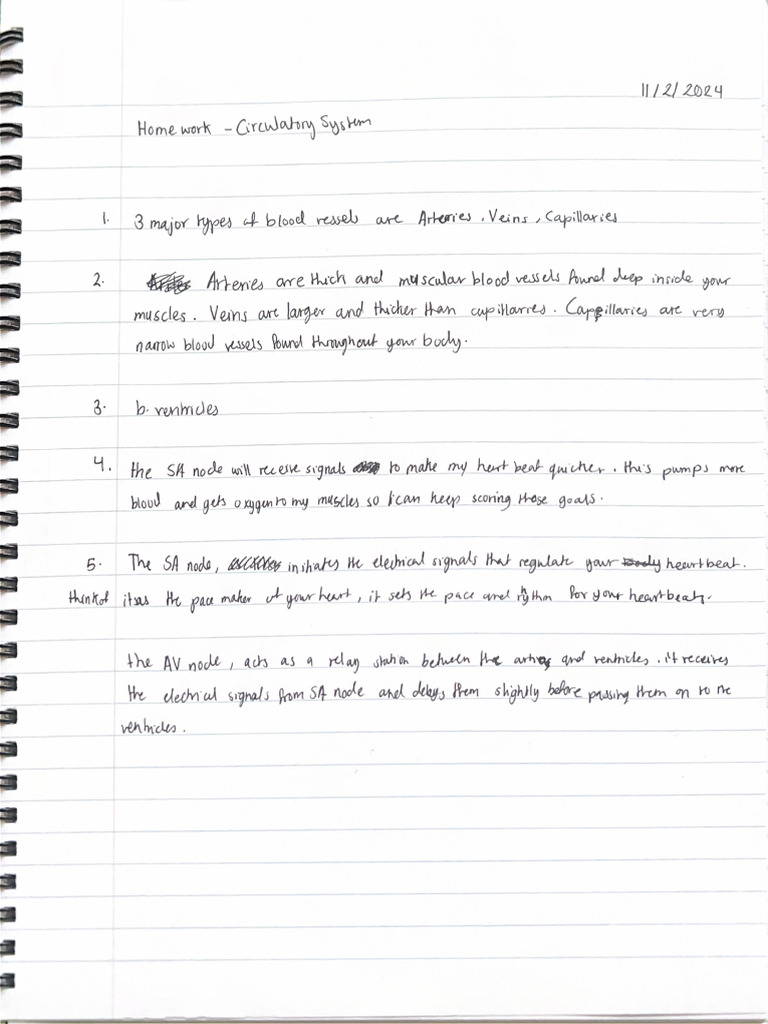 11/2/2024
Homework - Circulatory System
1. 3 major types of blood vessels are Arteries, Veins, Capillaries
2. Arteries are thick and muscular blood vessels found deep inside your
muscles. Veins are larger and thicker than capillarries. Cappillaries are very
narrow blood vessels found throughout your body.
3. b. ventricles
4. the SA node will receive signals to make my heart beat quicker. this pumps more
blood and gets oxygen to my muscles so I can keep scoring those goals.
5. The SA node, initiates the electrical signals that regulate your body heartbeat.
think of it as the pace maker of your heart, it sets the pace and rythm for your heartbeats.
the AV node, acts as a relay station between the and ventricles. it receives
the electrical signals from SA node and delays them slightly before passing them on to the
ventricles.